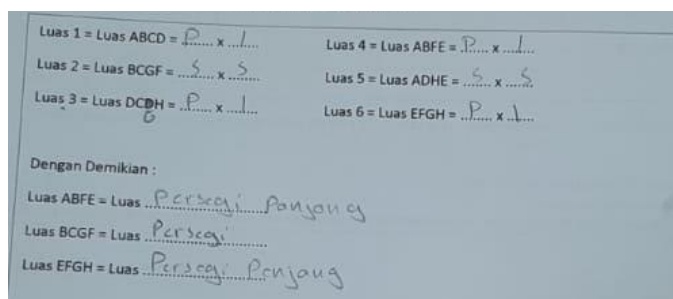 Luas 1 = Luas ABCD = P x l
Luas 4 = Luas ABFE = P x l
Luas 2 = Luas BCGF = S x S
Luas 5 = Luas ADHE = S x S
Luas 3 = Luas DCDH = P x l
G
Luas 6 = Luas EFGH = P x l
Dengan Demikian :
Luas ABFE = Luas Persegi Panjang
Luas BCGF = Luas Persegi
Luas EFGH = Luas Persegi Panjang